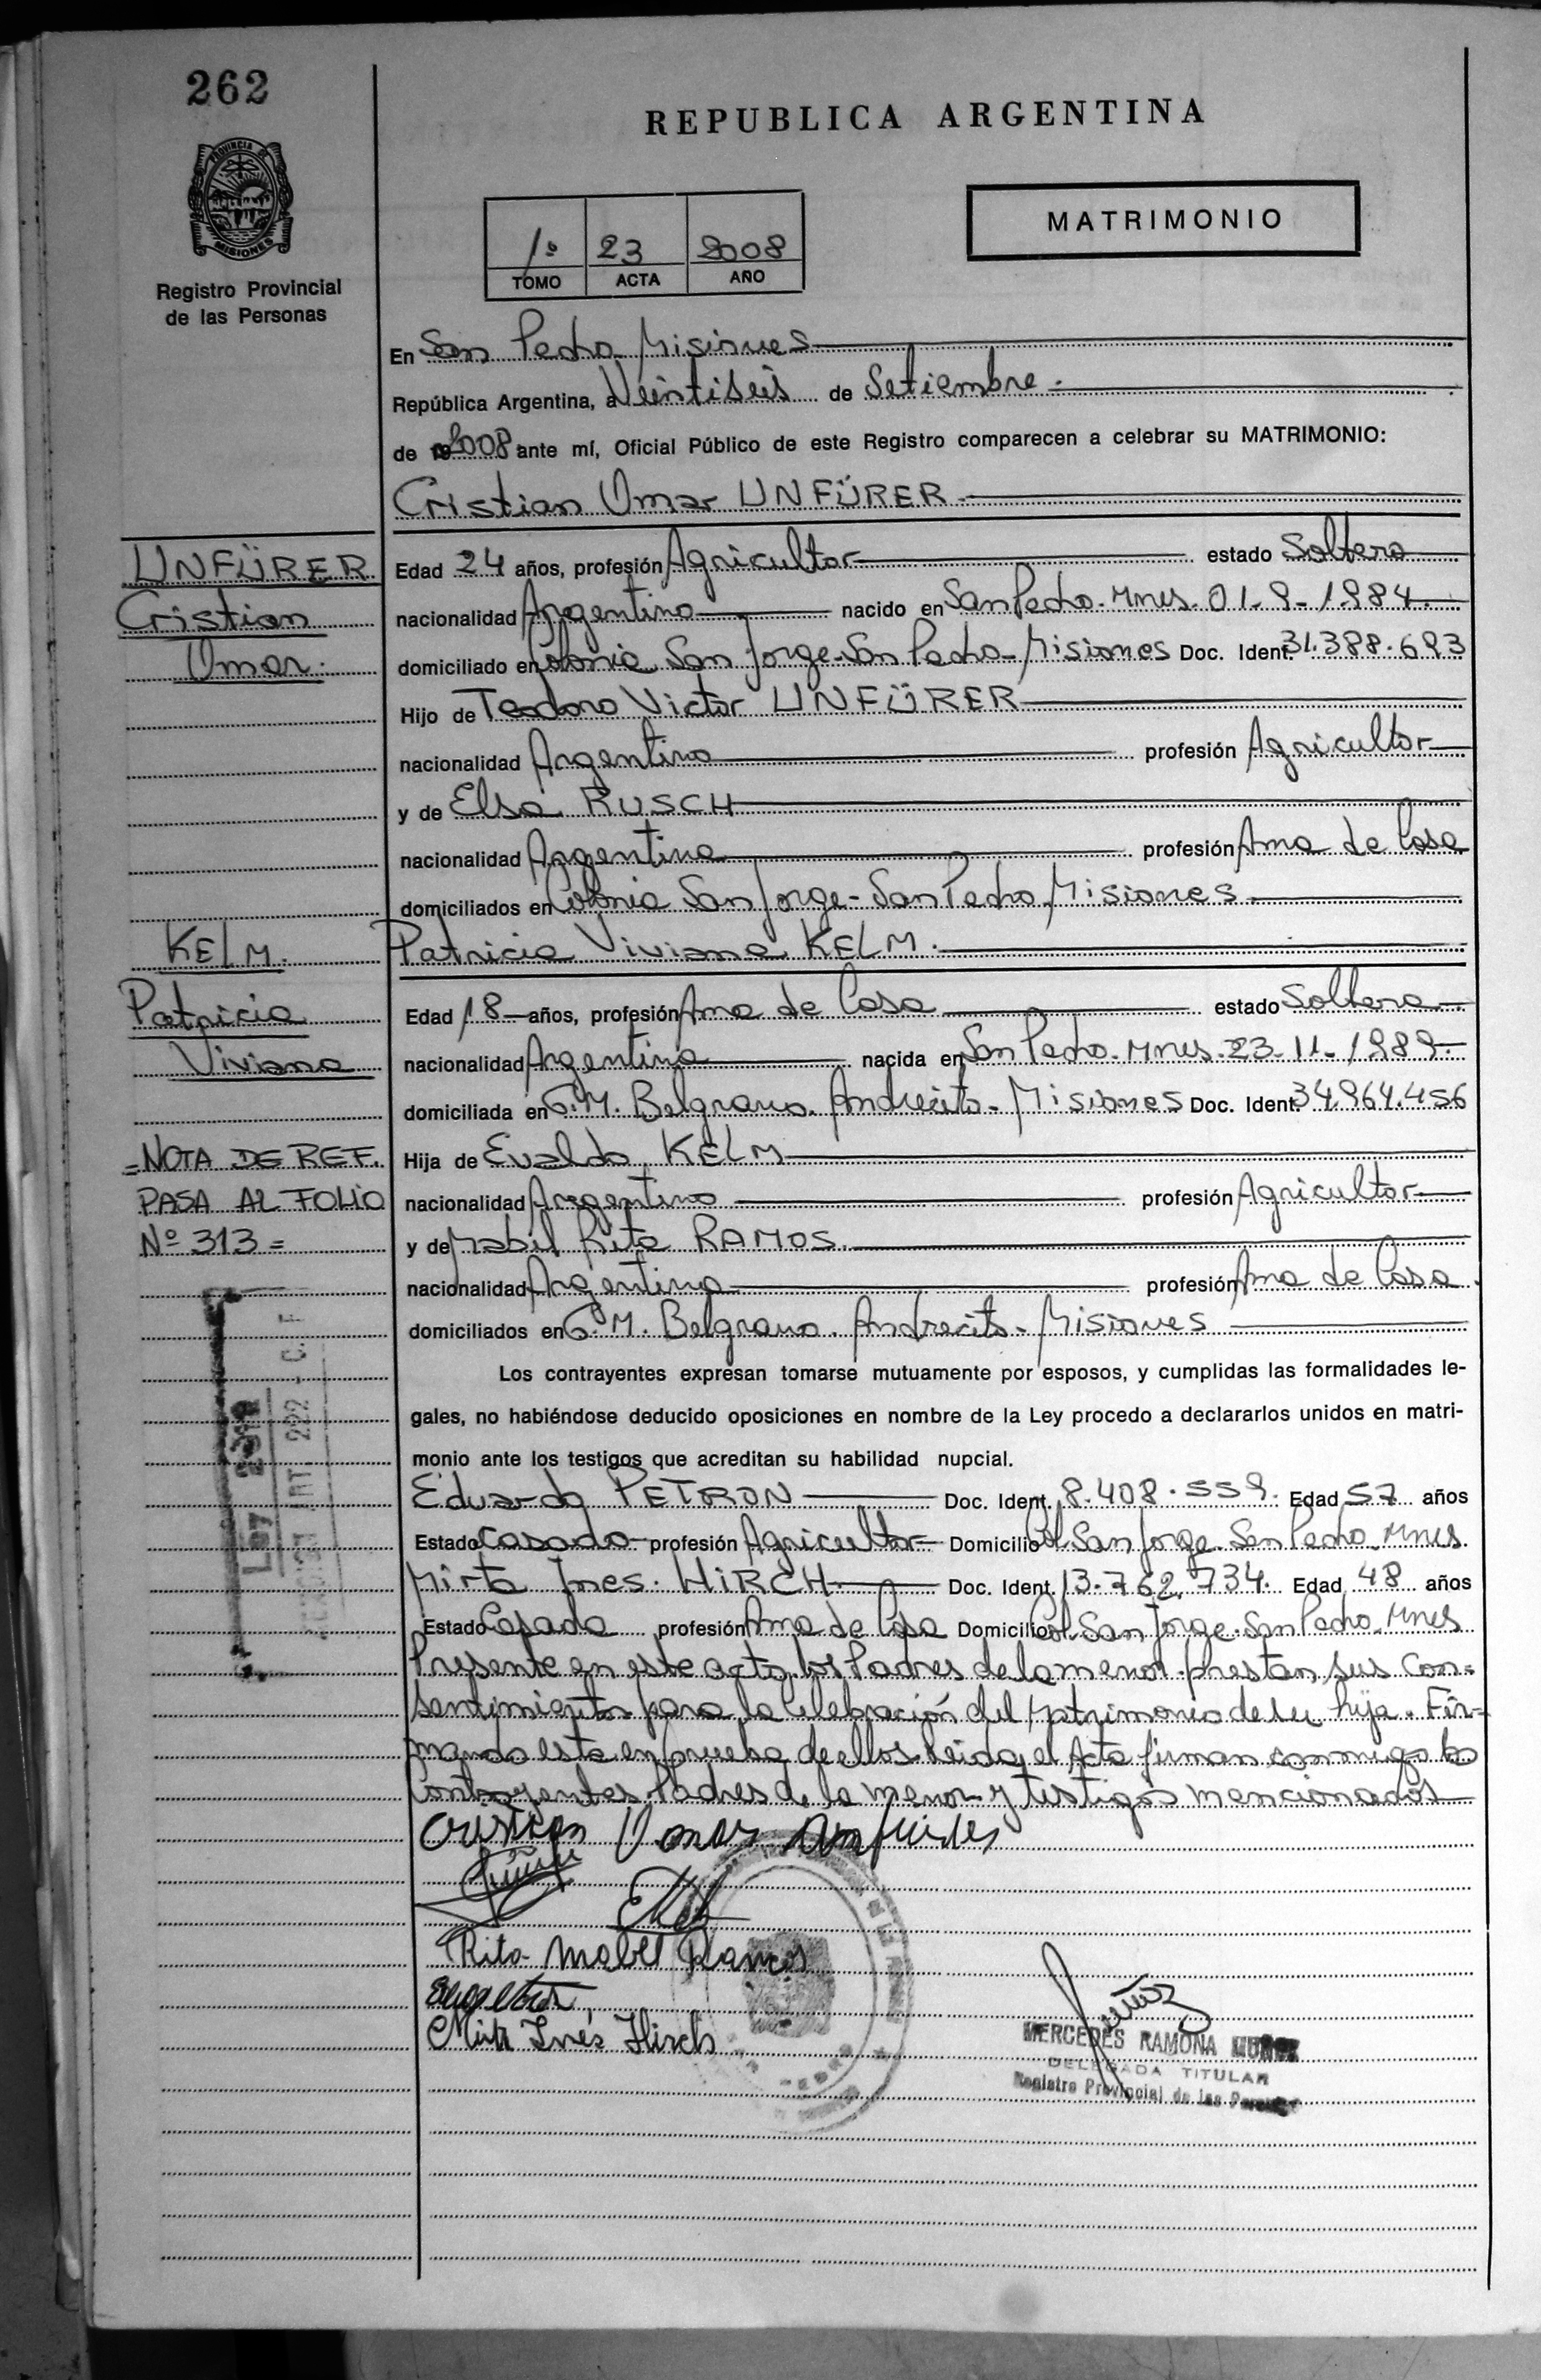 262
REPUBLICA ARGENTINA
PROVINCIA DE
MISIONES
Registro Provincial
de las Personas
1º 23 2008
TOMO ACTA AÑO
MATRIMONIO
En San Pedro Misiones
República Argentina, a Veintiseis de Setiembre.
de 2008 ante mí, Oficial Público de este Registro comparecen a celebrar su MATRIMONIO:
Cristian Omar UNFÜRER
UNFÜRER
Cristian
Omar.
Edad 24 años, profesión Agricultor estado Soltero
nacionalidad Argentino nacido en San Pedro. Mnes. 01-9-1984.
domiciliado en Colonia San Jorge-San Pedro-Misiones Doc. Ident. 31.388.693
Hijo de Teodoro Victor UNFÜRER
nacionalidad Argentino profesión Agricultor
y de Elsa RUSCH
nacionalidad Argentina profesión Ama de Casa
domiciliados en Colonia San Jorge-San Pedro Misiones
KELM.
Patricia
Viviana
Patricia Viviana KELM.
Edad 18 años, profesión Ama de Casa estado Soltera
nacionalidad Argentina nacida en San Pedro. Mnes. 23-11-1989.
domiciliada en G.M. Belgrano. Andresito-Misiones Doc. Ident. 34.964.456
=NOTA DE REF.
PASA AL FOLIO
Nº 313=
Hija de Evaldo KELM
nacionalidad Argentino profesión Agricultor
y de Mabel Rita RAMOS.
nacionalidad Argentina profesión Ama de Casa.
domiciliados en G.M. Belgrano. Andresito-Misiones
Los contrayentes expresan tomarse mutuamente por esposos, y cumplidas las formalidades le-
gales, no habiéndose deducido oposiciones en nombre de la Ley procedo a declararlos unidos en matri-
monio ante los testigos que acreditan su habilidad nupcial.
Eduardo PETRON Doc. Ident. 8.408.559. Edad 57 años
Estado Casado profesión Agricultor Domicilio Col. San Jorge. San Pedro. Mnes.
Mirta Ines. HIRCH Doc. Ident. 13.762.734. Edad 48 años
Estado Casada profesión Ama de Casa Domicilio Col. San Jorge. San Pedro. Mnes
Presente en este acto los Padres de la menor prestan sus Con-
sentimientos para la Celebración del Matrimonio de su hija. Fir-
mando esta en prueba de ellos leida el Acta firman conmigo los
Contrayentes Padres de la menor y testigos mencionados
Cristian Omar Unfürer
Rita Mabel Ramos
Mirta Inés Hirch
MERCEDES RAMONA MUÑOZ
DELEGADA TITULAR
Registro Provincial de las Personas